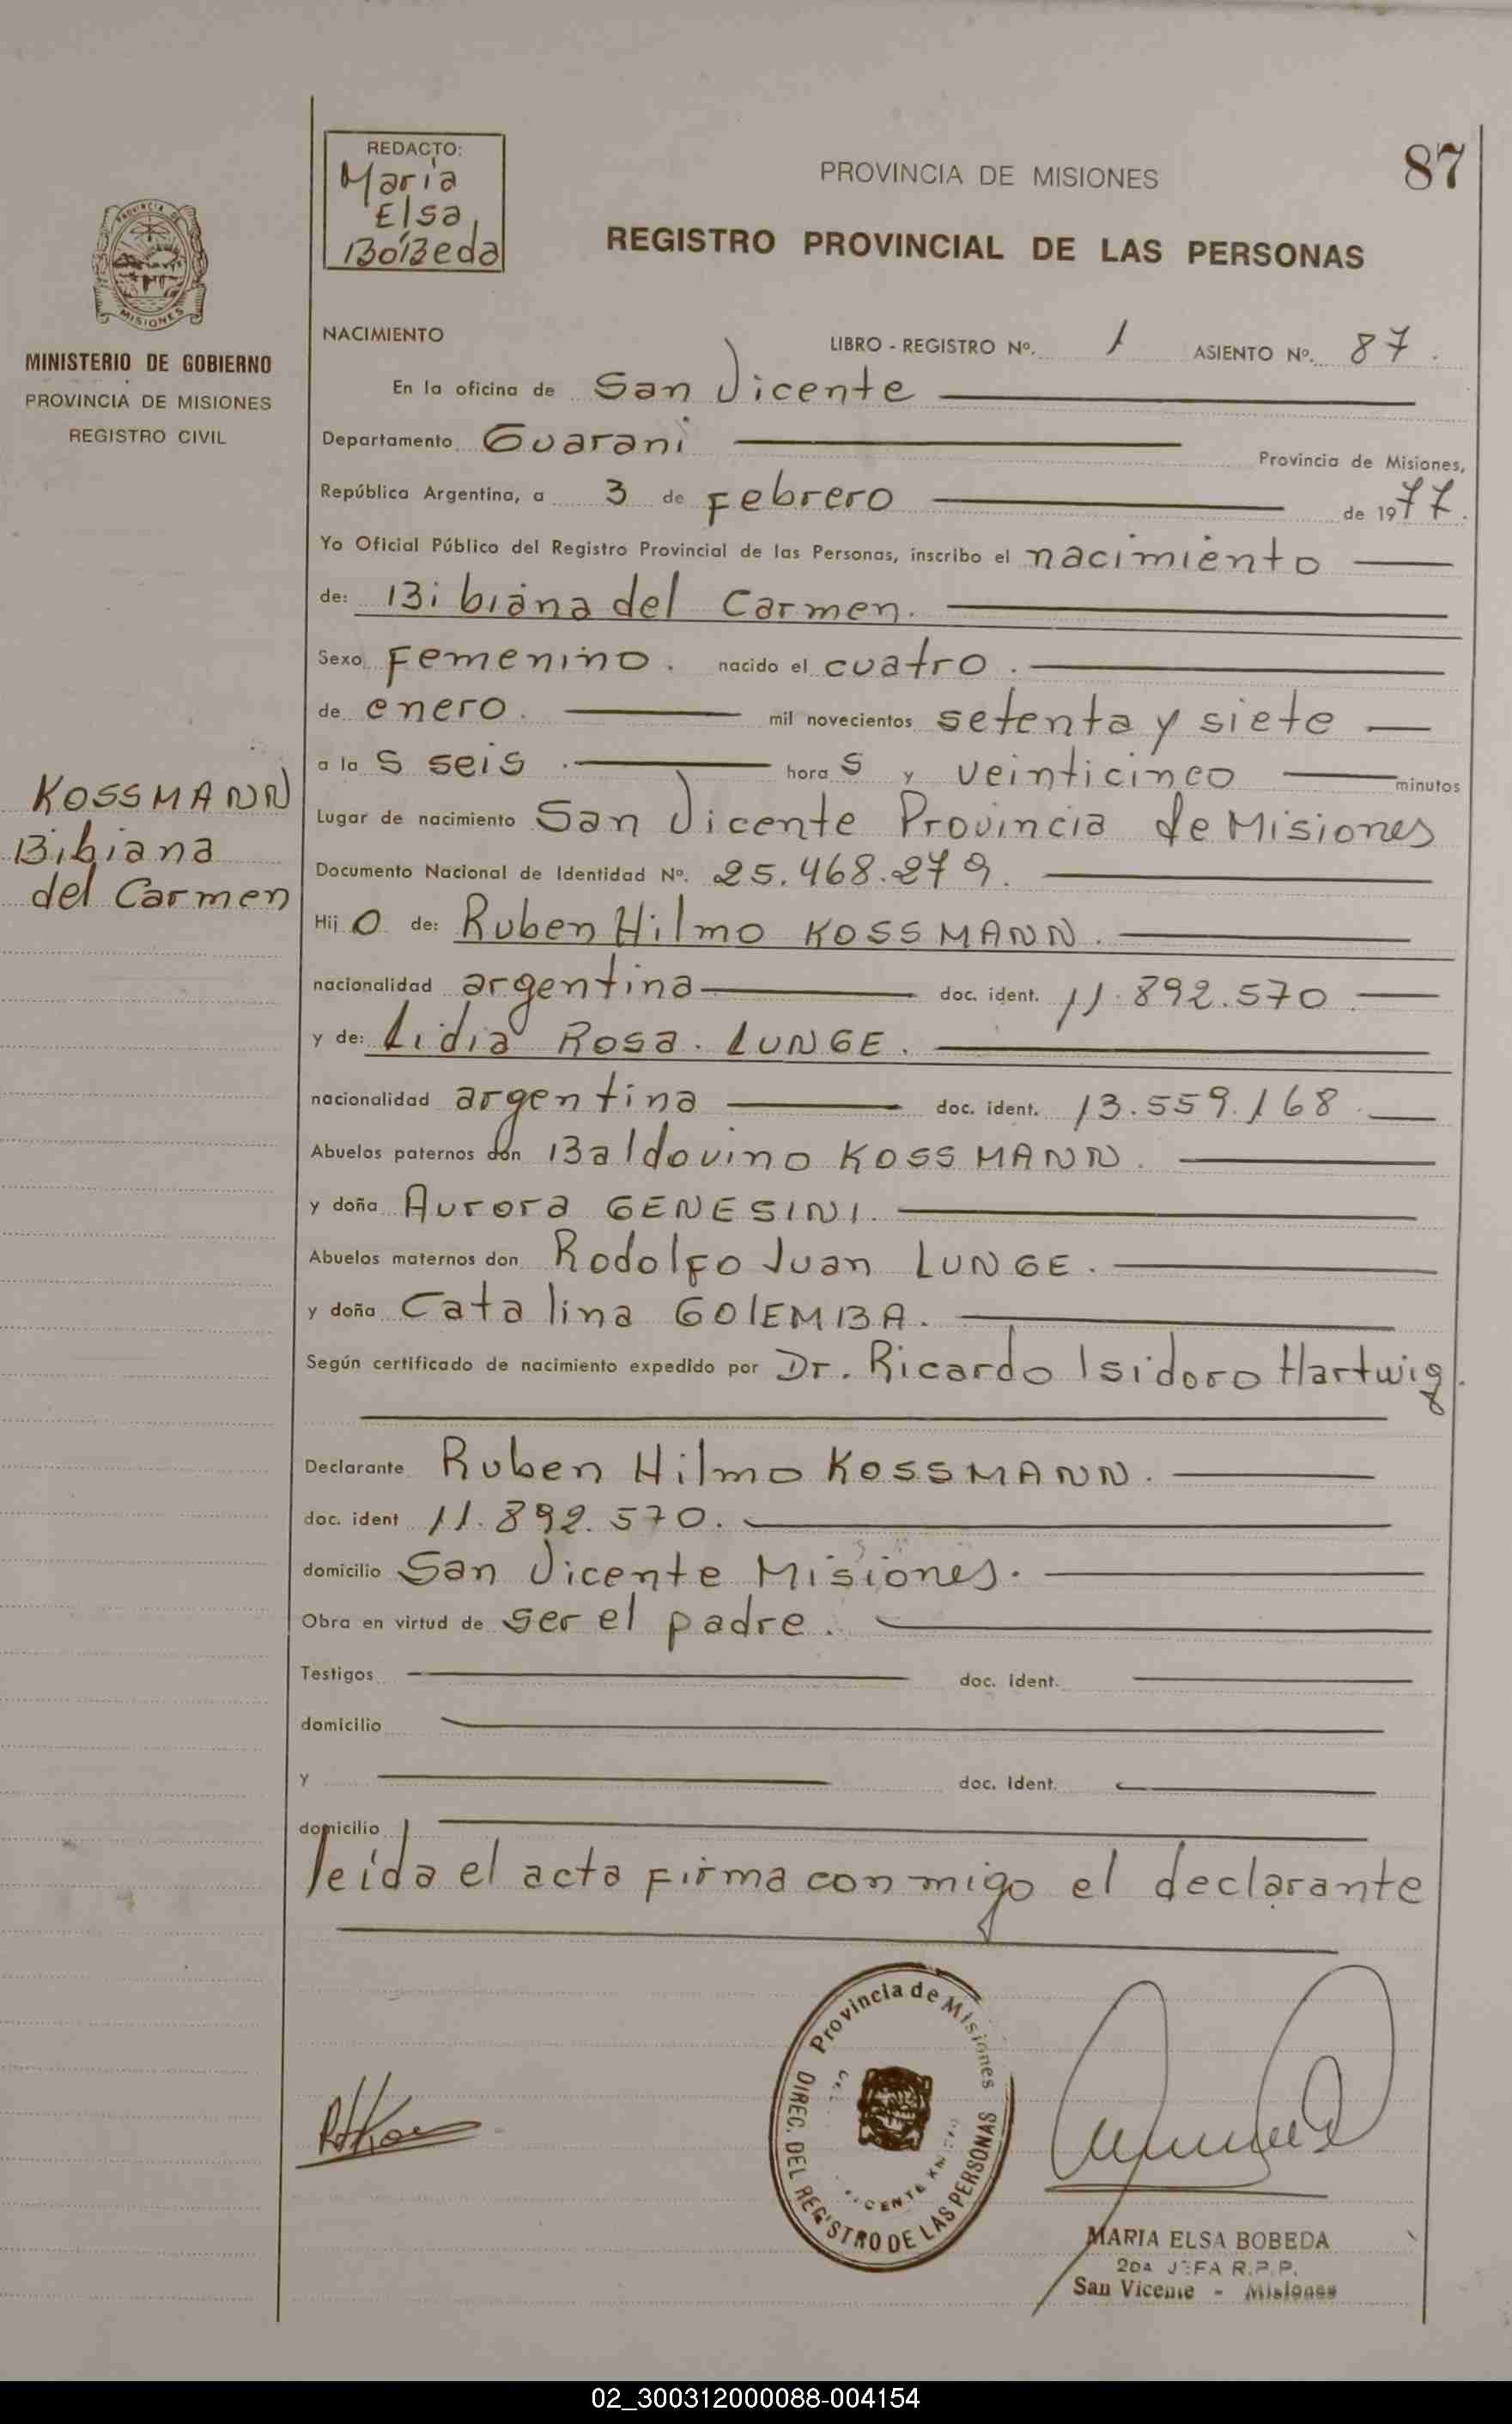 REDACTO:
María
Elsa
Bobeda
PROVINCIA DE MISIONES
87
REGISTRO PROVINCIAL DE LAS PERSONAS
PROVINCIA DE
MISIONES
MINISTERIO DE GOBIERNO
PROVINCIA DE MISIONES
REGISTRO CIVIL
NACIMIENTO
LIBRO - REGISTRO Nº. 1 ASIENTO Nº. 87.
En la oficina de San Vicente
Departamento Guarani Provincia de Misiones,
República Argentina, a 3 de Febrero de 1977.
Yo Oficial Público del Registro Provincial de las Personas, inscribo el nacimiento
de: Bibiana del Carmen.
Sexo Femenino. nacido el cuatro.
de enero. mil novecientos setenta y siete
a la s seis hora s y veinticinco minutos
KOSSMANN
Bibiana
del Carmen
Lugar de nacimiento San Vicente Provincia de Misiones
Documento Nacional de Identidad Nº. 25.468.279.
Hij o de: Ruben Hilmo KOSSMANN.
nacionalidad argentina doc. ident. 11.892.570
y de: Lidia Rosa. LUNGE.
nacionalidad argentina doc. ident. 13.559.168
Abuelos paternos don Baldovino KOSSMANN.
y doña Aurora GENESINI.
Abuelos maternos don Rodolfo Juan LUNGE.
y doña Catalina GOLEMBA.
Según certificado de nacimiento expedido por Dr. Ricardo Isidoro Hartwig.
Declarante Ruben Hilmo KOSSMANN.
doc. ident 11.892.570.
domicilio San Vicente Misiones.
Obra en virtud de ser el padre.
Testigos doc. ident.
domicilio
y doc. ident.
domicilio
leida el acta firma con migo el declarante
Provincia de Misiones
DIREC. DEL REGISTRO DE LAS PERSONAS
MARIA ELSA BOBEDA
2DA JEFA R.P.P.
San Vicente - Misiones
02_300312000088-004154